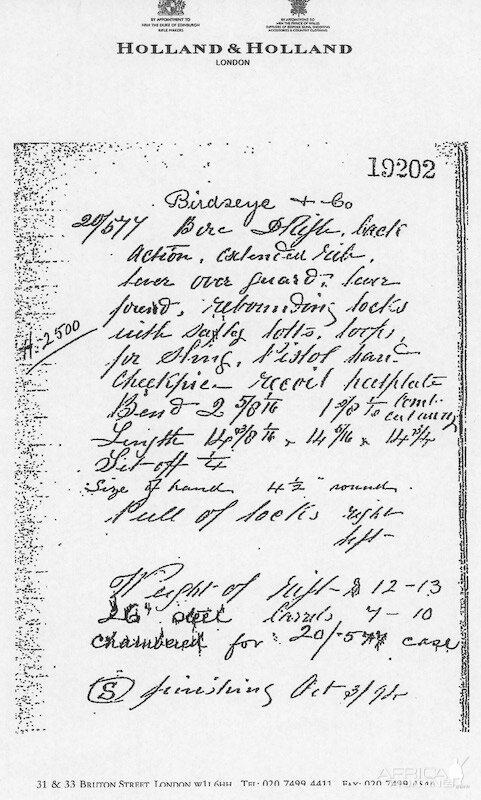 BY APPOINTMENT TO
HRH THE DUKE OF EDINBURGH
RIFLE MAKERS
BY APPOINTMENT TO
HRH THE PRINCE OF WALES
HOLLAND & HOLLAND
LONDON
19202
Birdseye & Co
20/577 Bore D Rifle, back
action, extended rib,
lever over guard, lever
rebounding locks
H. 2500
with bolts, loops,
for Sling, Pistol hand
Cheekpiece recoil heelplate
Bend 2 5/8 1/16 1 5/8 1/16
Length 14 3/8 1/16 x 14 5/16 x 14 3/4
Set-off 1/4
Size of hand 4 1/2" round
Pull of locks right
left
Weight of rifle 12-13
26" steel barrels 7-10
chambered for 20/577 case
S finishing Oct 3/98
31 & 33 BRUTON STREET, LONDON W1J 6HH TEL: 020 7499 4411 FAX: 020 7499
AFRICA